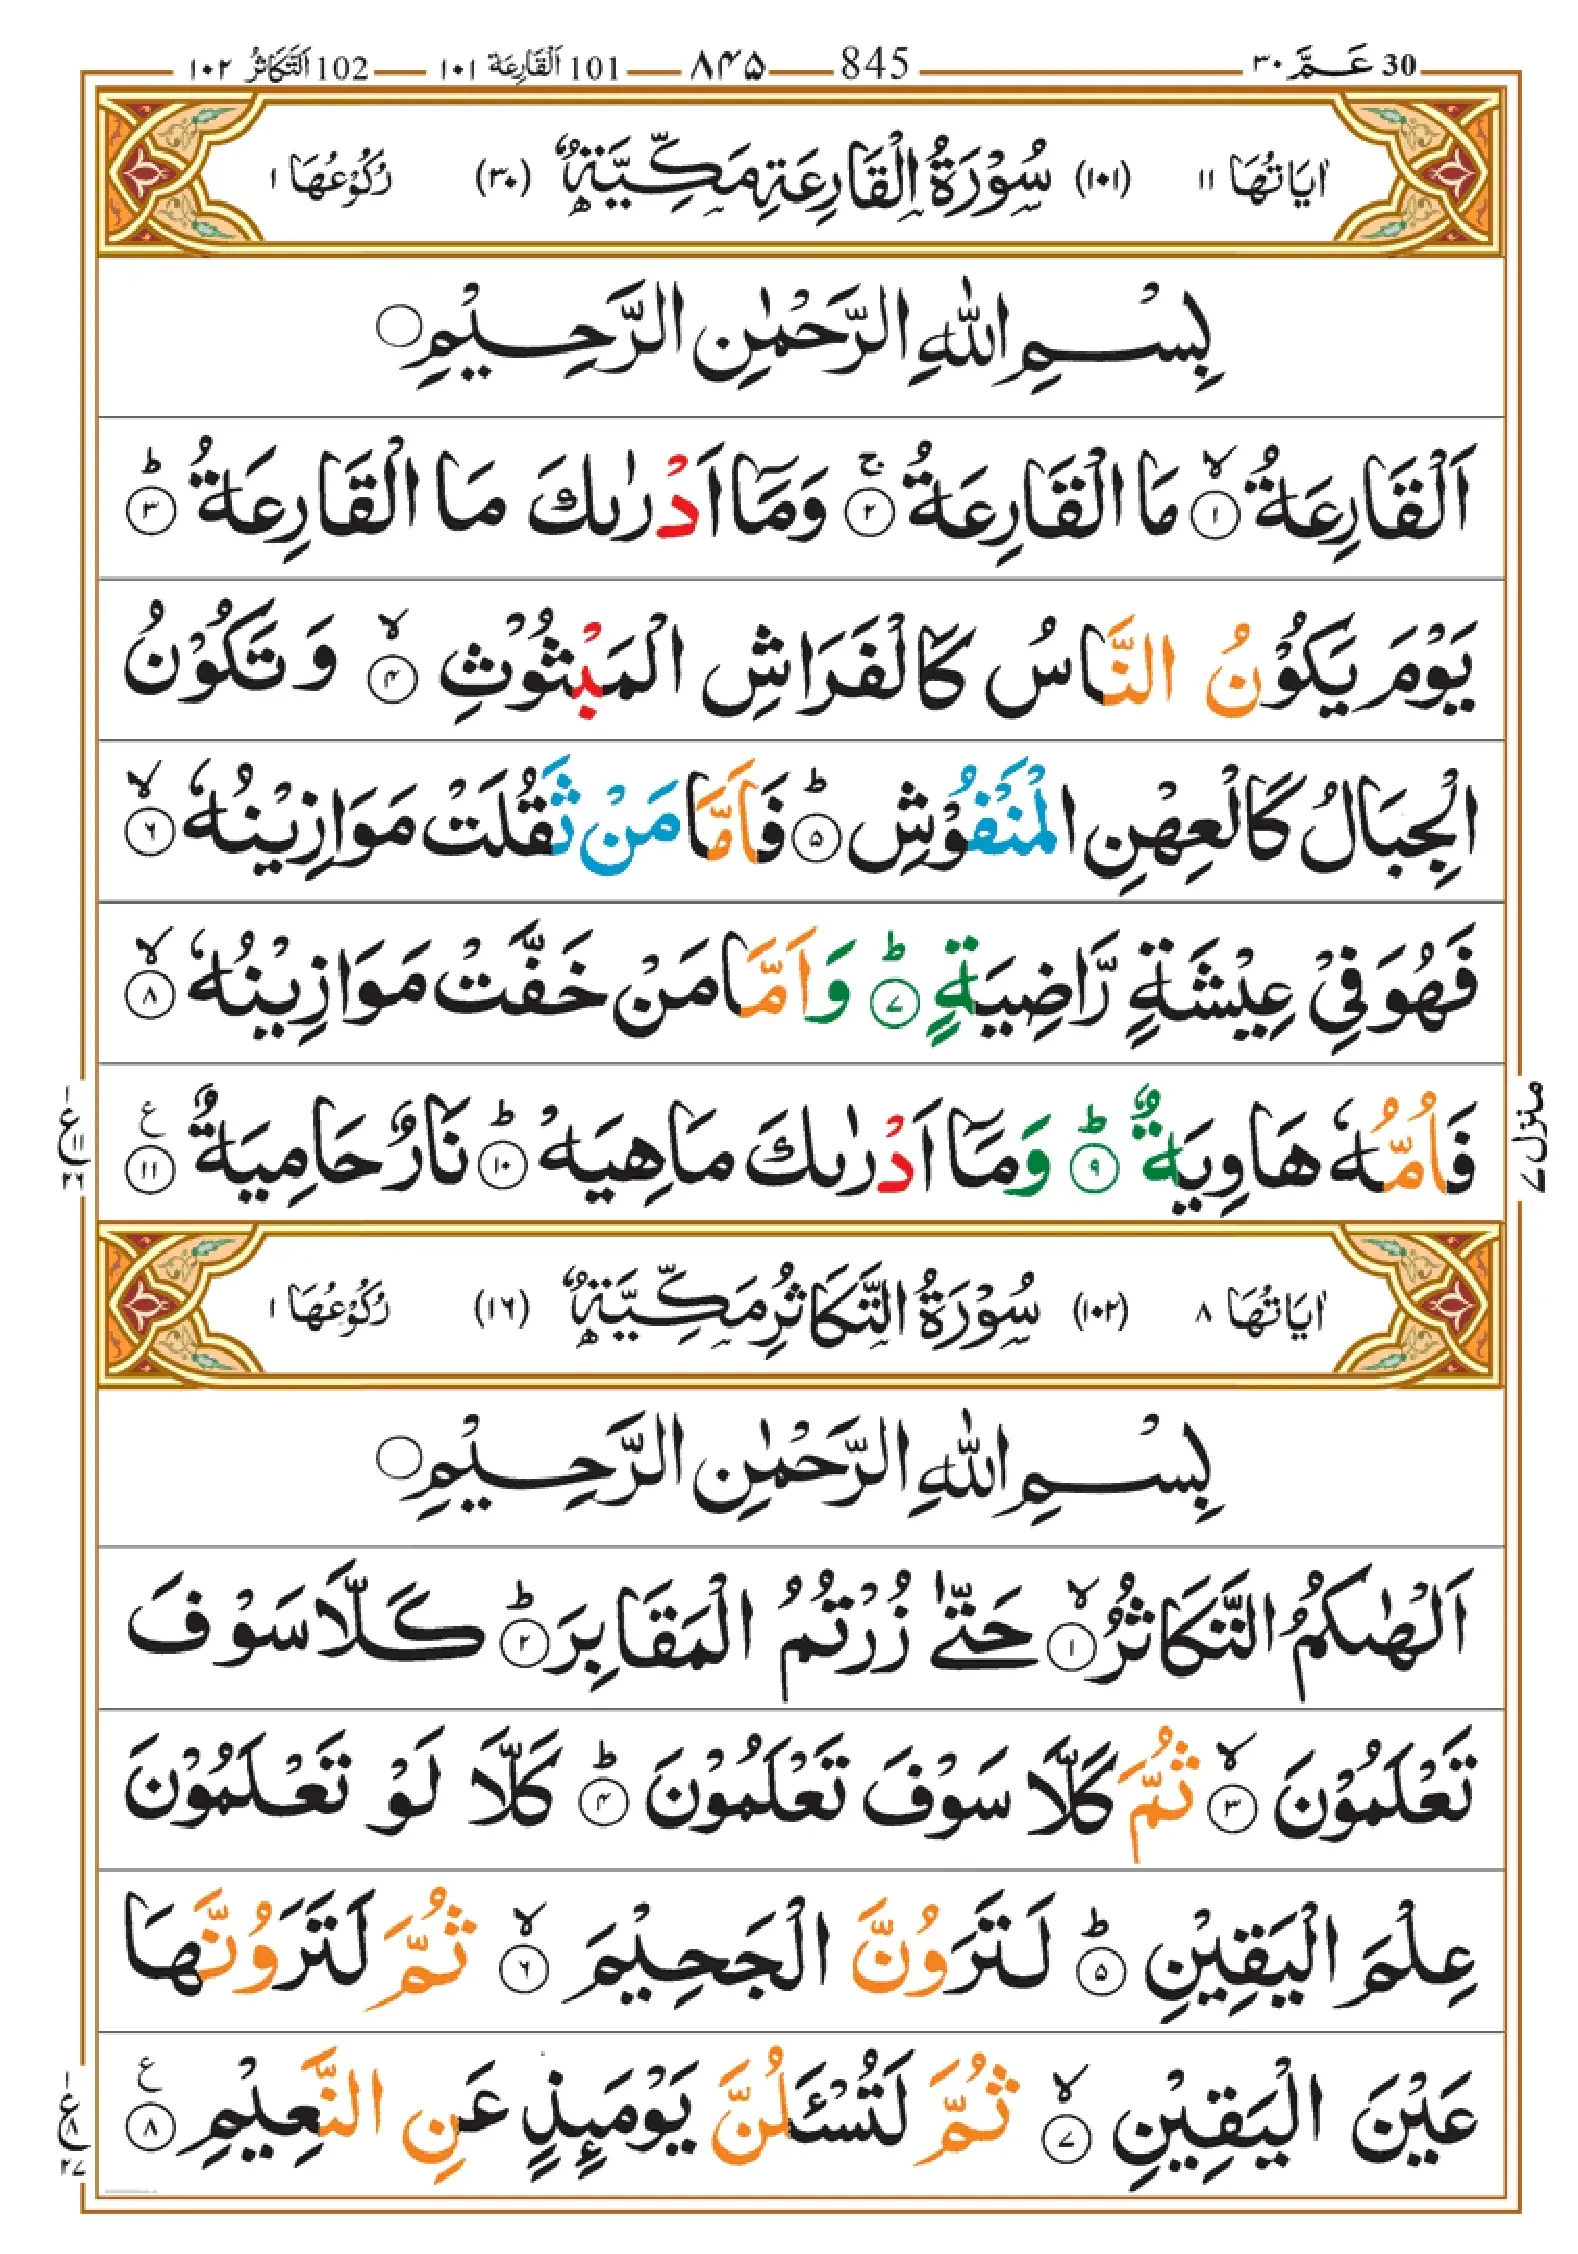 30 عَمَّ ۳۰ 845 ۸۴۵ 101 اَلْقَارِعَة ۱۰۱ 102 اَلتَّكَاثُر ۱۰۲
اٰيَاتُهَا ۱۱ (۱۰۱) سُوْرَةُ الْقَارِعَةِ مَكِّيَّةٌ (۳۰) رُكُوْعُهَا ۱
بِسْمِ اللّٰهِ الرَّحْمٰنِ الرَّحِيْمِ ○
اَلْقَارِعَةُ ۙ﴿۱﴾ مَا الْقَارِعَةُ ۚ﴿۲﴾ وَمَاۤ اَدْرٰىكَ مَا الْقَارِعَةُ ؕ﴿۳﴾
يَوْمَ يَكُوْنُ النَّاسُ كَالْفَرَاشِ الْمَبْثُوْثِ ۙ﴿۴﴾ وَتَكُوْنُ
الْجِبَالُ كَالْعِهْنِ الْمَنْفُوْشِ ؕ﴿۵﴾ فَاَمَّا مَنْ ثَقُلَتْ مَوَازِيْنُهٗ ۙ﴿۶﴾
فَهُوَ فِيْ عِيْشَةٍ رَّاضِيَةٍ ؕ﴿۷﴾ وَاَمَّا مَنْ خَفَّتْ مَوَازِيْنُهٗ ۙ﴿۸﴾
فَاُمُّهٗ هَاوِيَةٌ ؕ﴿۹﴾ وَمَاۤ اَدْرٰىكَ مَاهِيَهْ ؕ﴿۱۰﴾ نَارٌ حَامِيَةٌ ﴿۱۱﴾ ع
۱ ع ۱۱ ۲۶
منزل ۷
اٰيَاتُهَا ۸ (۱۰۲) سُوْرَةُ التَّكَاثُرِ مَكِّيَّةٌ (۱۶) رُكُوْعُهَا ۱
بِسْمِ اللّٰهِ الرَّحْمٰنِ الرَّحِيْمِ ○
اَلْهٰىكُمُ التَّكَاثُرُ ۙ﴿۱﴾ حَتّٰى زُرْتُمُ الْمَقَابِرَ ؕ﴿۲﴾ كَلَّا سَوْفَ
تَعْلَمُوْنَ ۙ﴿۳﴾ ثُمَّ كَلَّا سَوْفَ تَعْلَمُوْنَ ؕ﴿۴﴾ كَلَّا لَوْ تَعْلَمُوْنَ
عِلْمَ الْيَقِيْنِ ؕ﴿۵﴾ لَتَرَوُنَّ الْجَحِيْمَ ۙ﴿۶﴾ ثُمَّ لَتَرَوُنَّهَا
عَيْنَ الْيَقِيْنِ ۙ﴿۷﴾ ثُمَّ لَتُسْـَٔلُنَّ يَوْمَئِذٍ عَنِ النَّعِيْمِ ﴿۸﴾ ع
۱ ع ۸ ۲۷